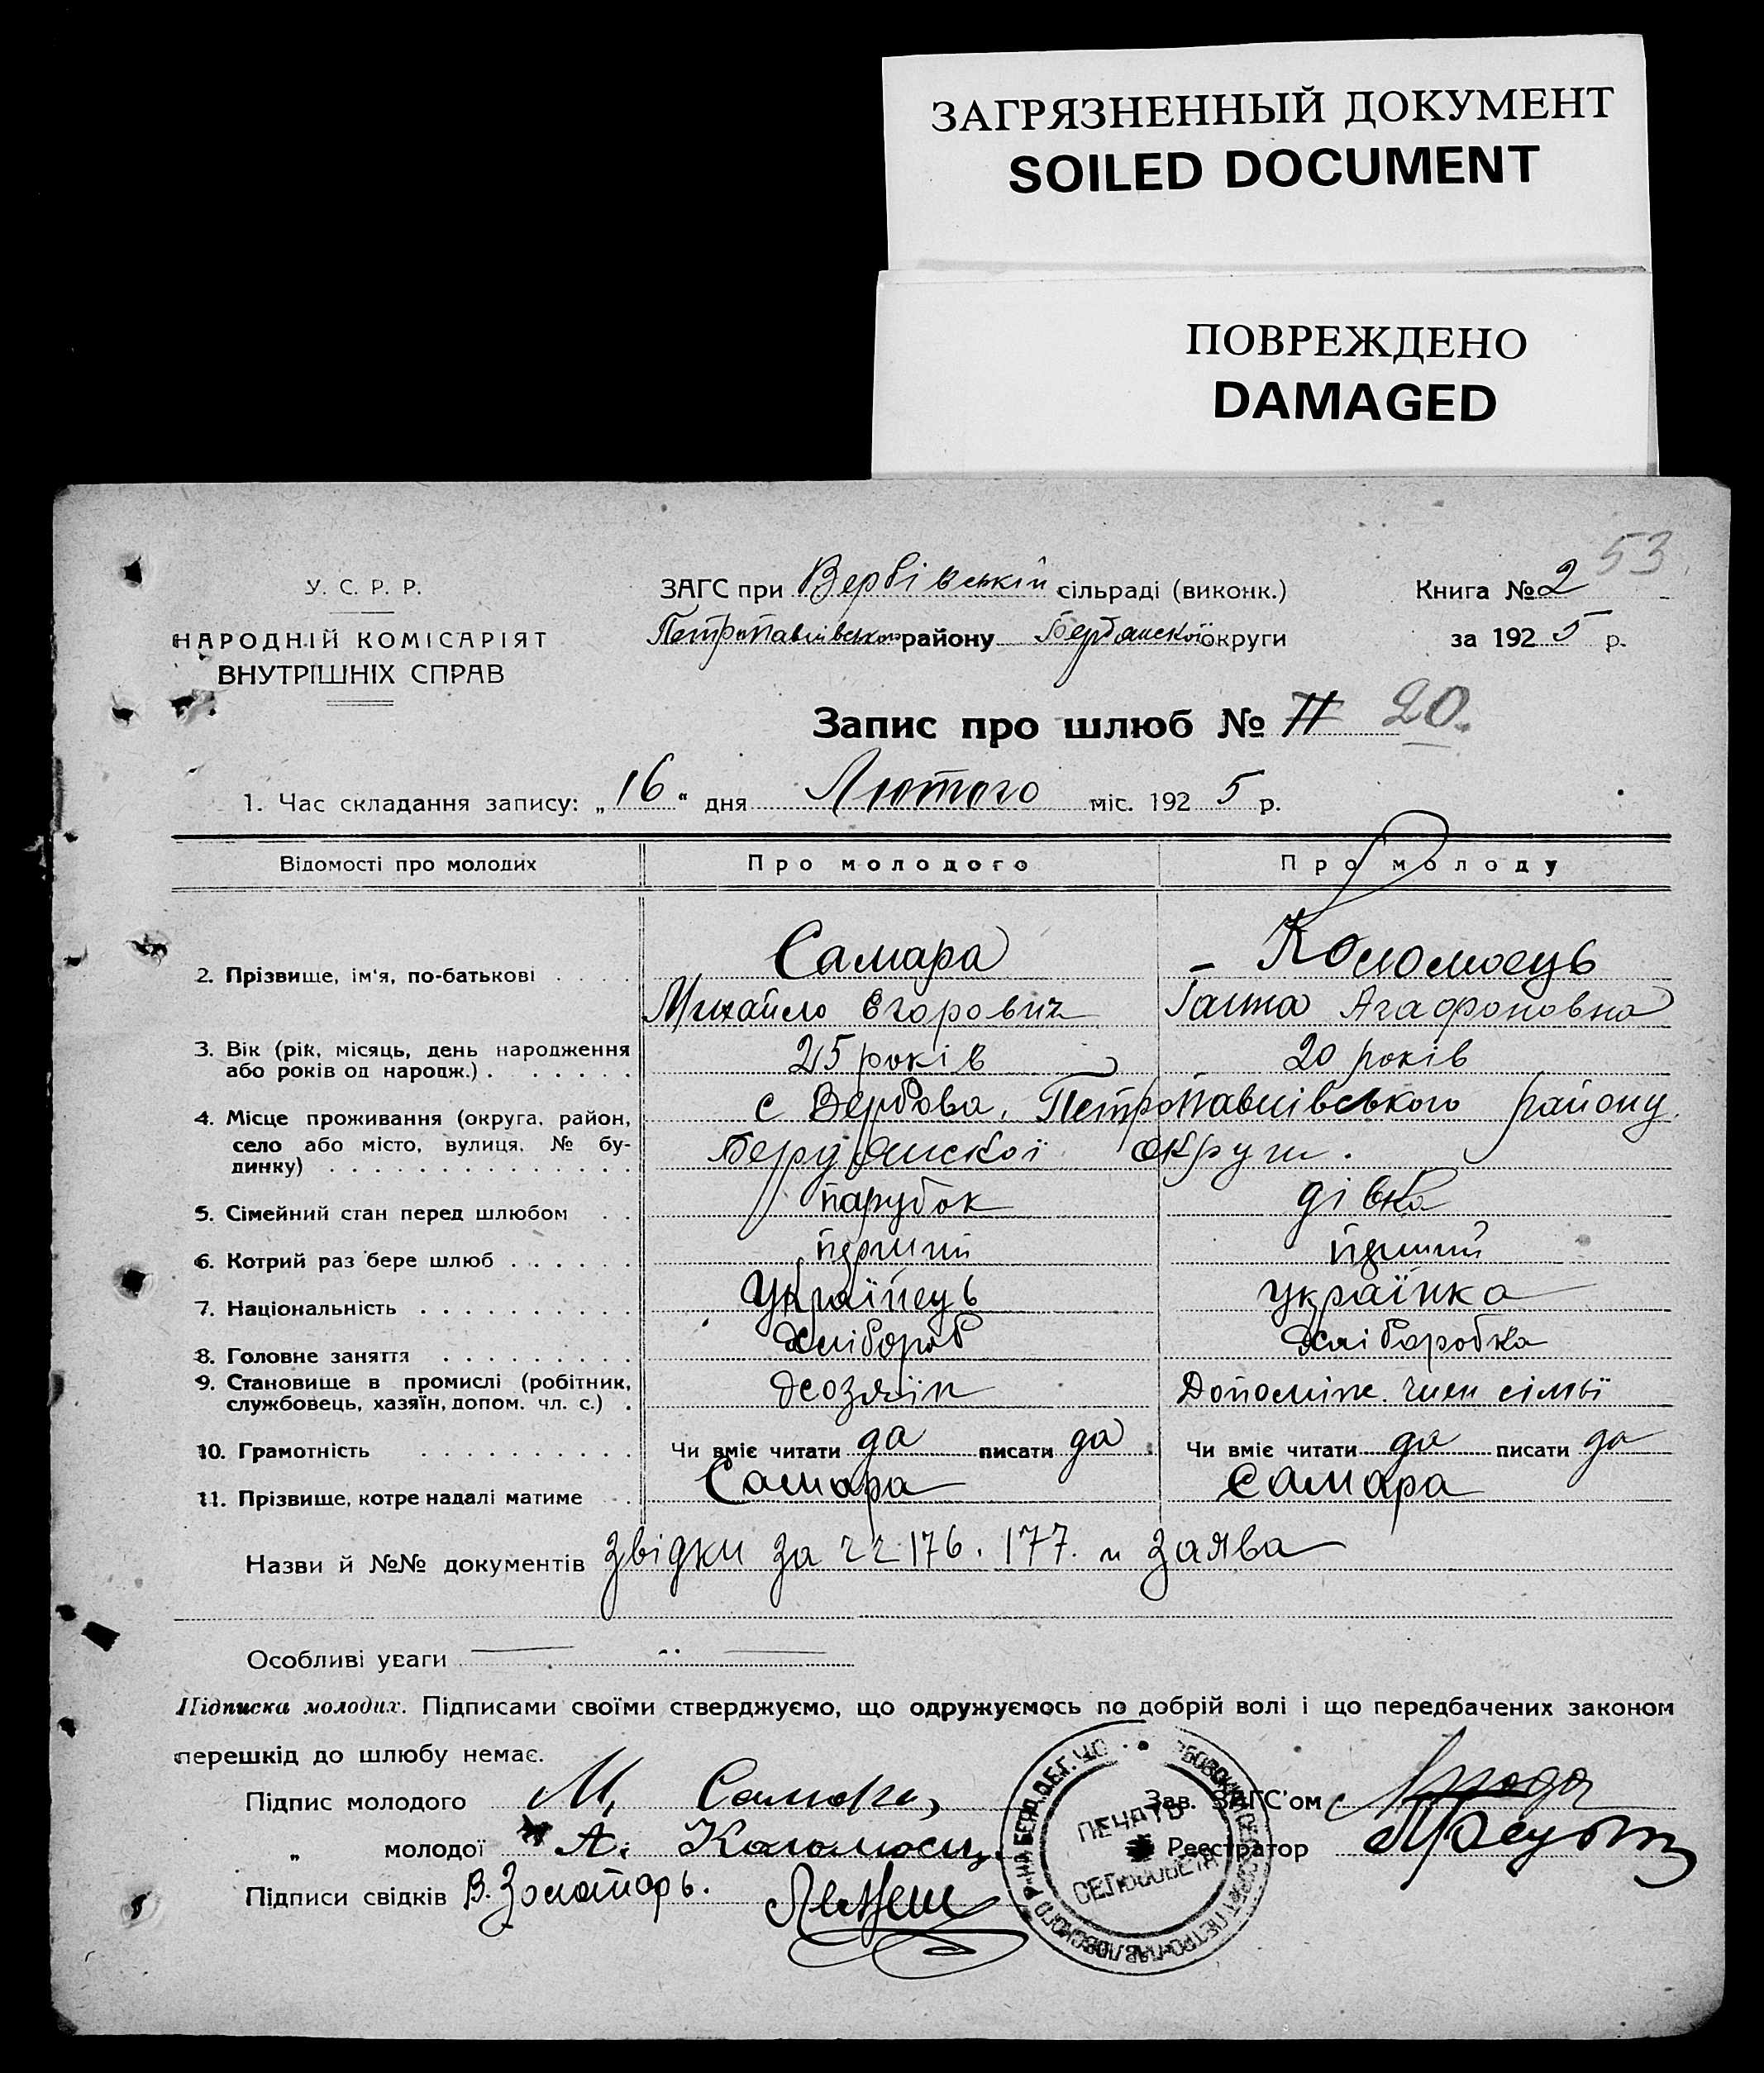 ЗАГРЯЗНЕННЫЙ ДОКУМЕНТ
SOILED DOCUMENT
ПОВРЕЖДЕНО
DAMAGED
53
У. С. Р. Р.
НАРОДНІЙ КОМІСАРІЯТ
ВНУТРІШНІХ СПРАВ
ЗАГС при Вербівській сільраді (виконк.)
Петропавлівського району Бердянської округи
Книга № 2
за 1925 р.
Запис про шлюб № 11 20.
1. Час складання запису: „16“ дня Лютого міс. 1925 р.
Відомості про молодих Про молодого Про молоду
2. Прізвище, ім'я, по-батькові . . . . Самара Коломоець
Михайло Егорович Ганна Агафоновна
3. Вік (рік, місяць, день народження або років од народж.) . . . . . . 25 років 20 років
4. Місце проживання (округа, район, село або місто, вулиця, № будинку) . . . . . . . . . . . . . . с Вербова, Петропавлівського району
Бердянскої округи.
5. Сімейний стан перед шлюбом . . парубок дівка
6. Котрий раз бере шлюб . . . . . . перший перший
7. Національність . . . . . . . . . . Українець українка
8. Головне заняття . . . . . . . . . хлібороб хліборобка
9. Становище в промислі (робітник, службовець, хазяїн, допом. чл. с.) . хозяїн Допоміж. член сімьї
10. Грамотність . . . . . . . . . . Чи вміє читати да писати да Чи вміє читати да писати да
11. Прізвище, котре надалі матиме . . Самара Самара
Назви й №№ документів звідки за чч 176. 177. и заява
Особливі уваги
Підписка молодих. Підписами своїми стверджуємо, що одружуємось по добрій волі і що передбачених законом
перешкід до шлюбу немає.
Підпис молодого М. Самара Зав. ЗАГС'ом
„ молодої А. Коломоец. Реєстратор
Підписи свідків В. Золотарь.
ПЕЧАТЬ
СЕЛЬСОВЕТА